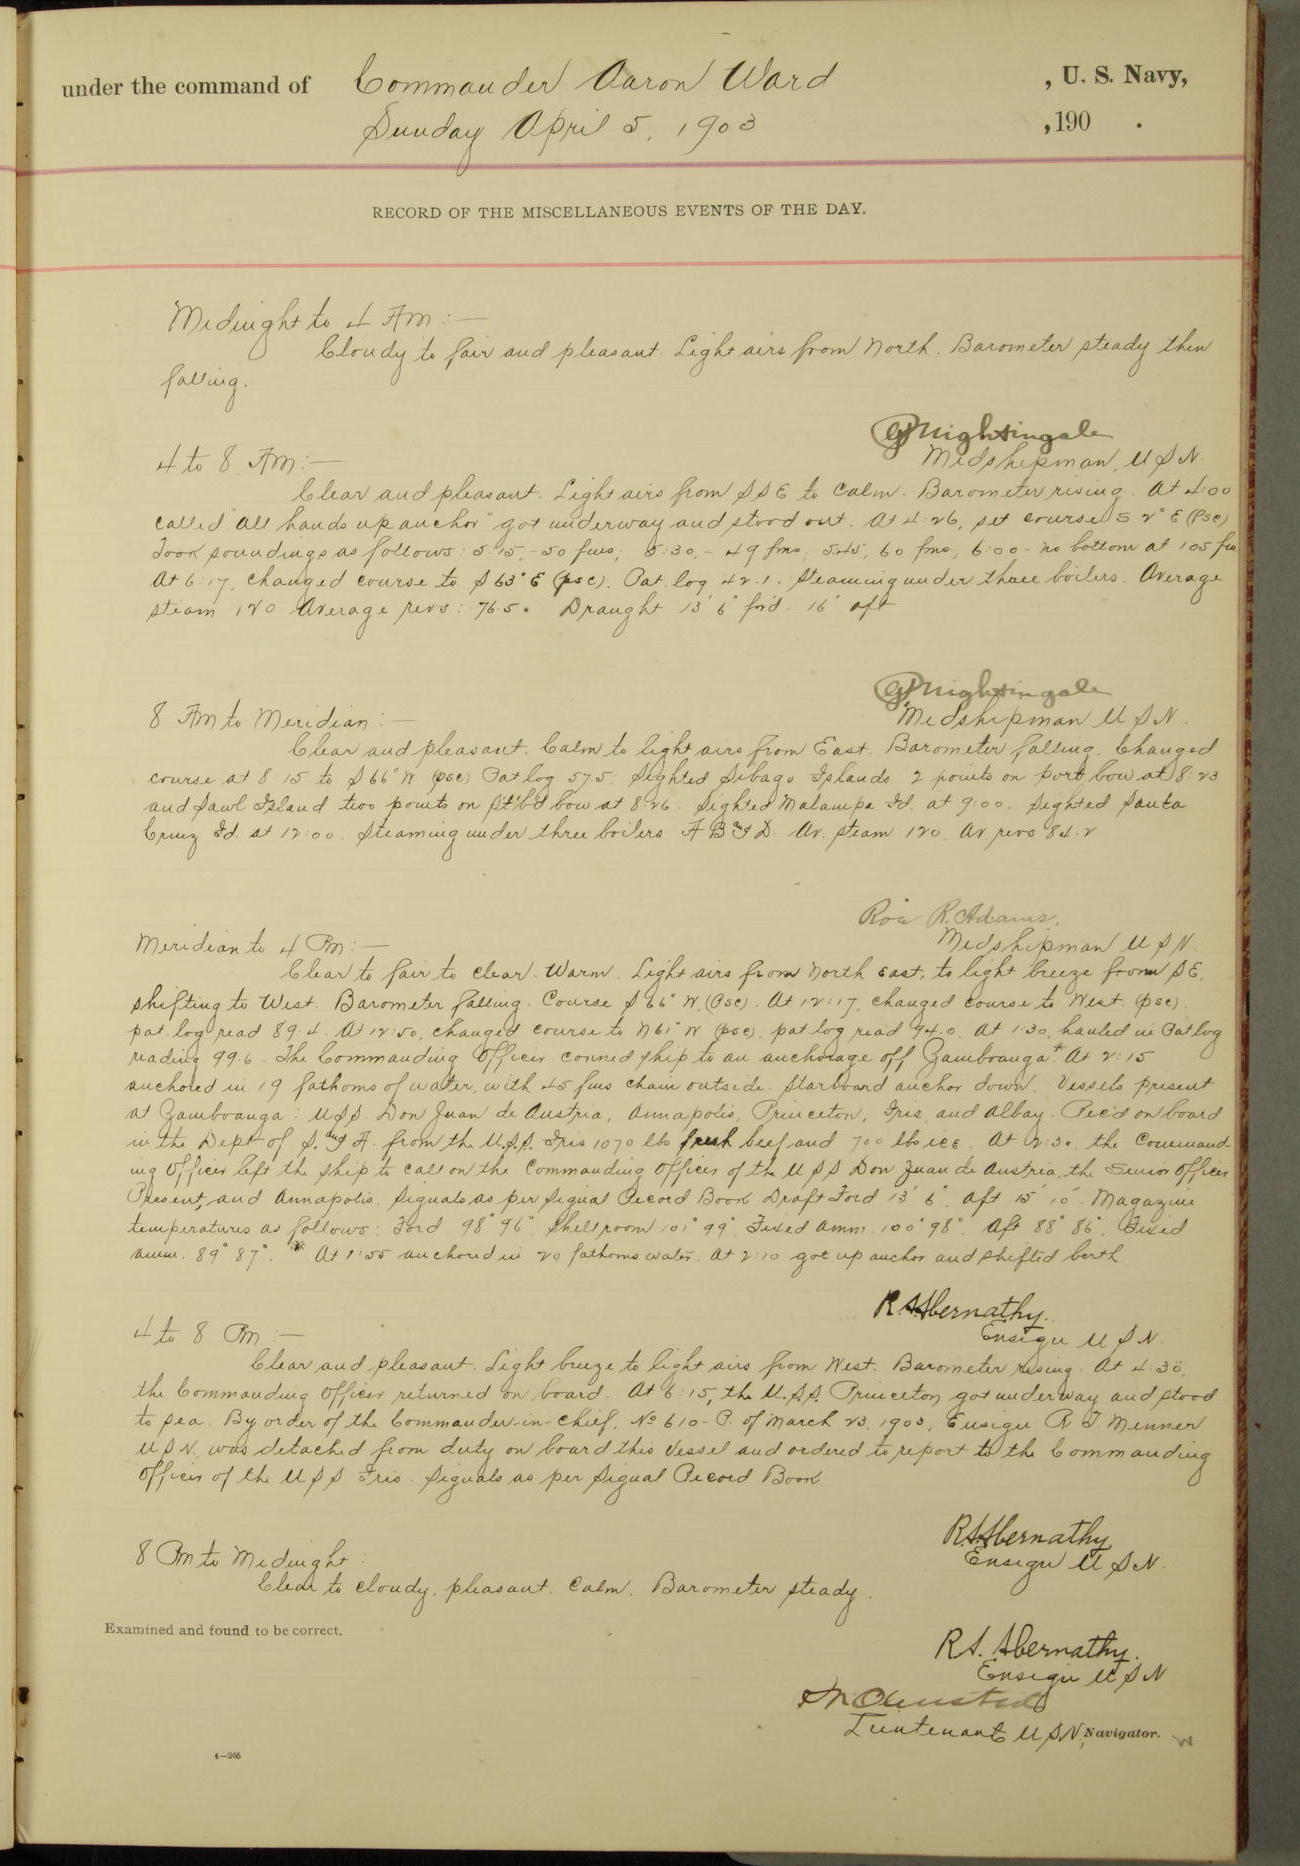 under the command of Commander Aaron Ward , U. S. Navy,
Sunday April 5, 1903 , 190 .
RECORD OF THE MISCELLANEOUS EVENTS OF THE DAY.
Midnight to 4 AM:—
Cloudy to fair and pleasant. Light airs from North. Barometer steady then
falling.
Nightingale
Midshipman, U S N.
4 to 8 AM:—
Clear and pleasant. Light airs from S S E to calm. Barometer rising. At 4:00
called "all hands up anchor" got underway and stood out. At 4:26, set course S 2° E (psc)
Took soundings as follows: 5:15,- 50 fms; 5:30,- 49 fms; 5:45, 60 fms, 6:00- no bottom at 105 fm
At 6:17, changed course to S 63° E (psc). Pat. log 42.1. Steaming under three boilers. Average
steam 120 Average revs: 76.5. Draught 13' 6" for'd. 16' aft
Nightingale
Midshipman U S N.
8 AM to Meridian:—
Clear and pleasant. Calm to light airs from East. Barometer falling. Changed
course at 8:15 to S 66° W (psc) Pat log 57.5. Sighted Sibago Islands 2 points on port bow at 8:23
and Sawl Island two points on St'b'd bow at 8:26. Sighted Malampa Id. at 9:00. Sighted Santa
Cruz Id. at 12:00. Steaming under three boilers A B & D. Av. steam 120. Av. revs 84.2
R. Adams,
Midshipman U S N.
Meridian to 4 PM:—
Clear to fair to clear. Warm. Light airs from North East, to light breeze from S E,
shifting to West. Barometer falling. Course S 66° W. (psc). At 12:17, changed course to West. (psc).
pat. log read 89.4. At 12:50, changed course to N 61° W (psc), pat log read 94.0. At 1:30, hauled in Pat log
reading 99.6. The Commanding Officer conned ship to an anchorage off Zamboanga* At 2:15
anchored in 19 fathoms of water, with 45 fms chain outside. Starboard anchor down. Vessels present
at Zamboanga: U.S.S. Don Juan de Austria, Annapolis, Princeton, Iris, and Albay. Rec'd on board
in the Dept of S. and A. from the U.S.S. Iris 1070 lbs fresh beef and 700 lbs ice. At 2:30, the Command-
ing Officer left the ship to call on the Commanding Officer of the U S S Don Juan de Austria, the Senior Officer
Present, and Annapolis. Signals as per Signal Record Book Draft For'd 13' 6". Aft 15' 10". Magazine
temperatures as follows: For'd 98° 96°. Shellroom 101° 99°. Fixed amm. 100° 98°. Aft 88° 86°. Fixed
amm. 89° 87°. * At 1:55 anchored in 20 fathoms water. At 2:10 got up anchor and shifted berth
R. S. Abernathy.
Ensign U S N.
4 to 8 PM:—
Clear and pleasant. Light breeze to light airs from West. Barometer rising. At 4:30,
the Commanding Officer returned on board. At 6:15, the U.S.S. Princeton got underway and stood
to sea. By order of the Commander-in-Chief, No 610-P. of March 23, 1903, Ensign R. T. Menner
U S N, was detached from duty on board this Vessel and ordered to report to the Commanding
Officer of the U S S Iris. Signals as per Signal Record Book
R. S. Abernathy
Ensign U S N.
8 PM to Midnight:
Clear to cloudy, pleasant. Calm. Barometer steady.
Examined and found to be correct.
R. S. Abernathy.
Ensign U S N
Olmsted
Lieutenant U S N, Navigator.
4—265